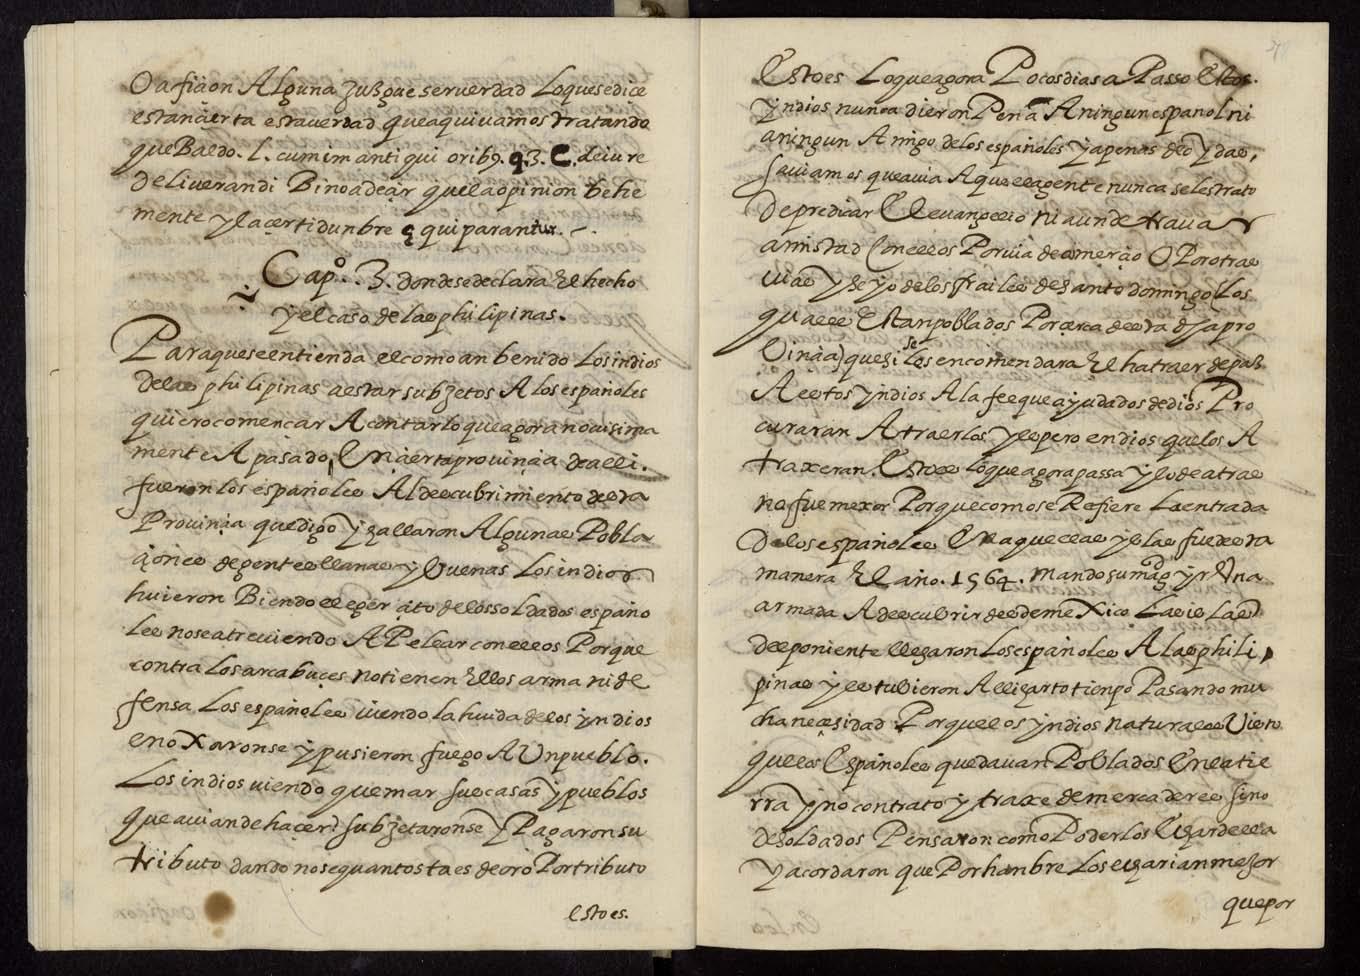 O aficion Alguna juzgue ser verdad Lo que se dice
estan cierta esta verdad que aqui vamos tratando
que Baldo. L. cum im antiqui orib9. q. 3. C. de iure
deliuerandi Bino a decir que la opinion behe
mente y la certidunbre e qui parantur.
Capo. 3. donde se declara El hecho
y el caso de las philipinas.
Para que se entienda el como an benido Los indios
de las philipinas a estar subjetos A los españoles
quiero comencar A contar lo que agora nouisima
mente A pasado, En cierta prouincia de alli.
fueron los españoles Al descubrimiento de esta
Prouincia que digo y hallaron Algunas Pobla
ciones de gentes llanas y buenas Los indios
huieron Biendo el egercito de los soldados españo
les no se atreuiendo A Pelear con ellos Porque
contra Los arcabuces no tienen Ellos arma ni de
fensa Los españoles viendo la huida de los yndios
enoxaronse y pusieron fuego A Un pueblo.
Los indios viendo quemar sus casas y pueblos
que auian de hacer? subjetaronse y Pagaron su
tributo dando no se quantos taes de oro Por tributo
esto es.
Esto es Lo que agora Pocos dias a Passo Estos.
yndios nunca dieron Pena A ningun español ni
a ningun Amigo de los españoles y apenas de oydas,
sauiamos que auia Aquella gente nunca se les trato
de predicar El euangelio ni aun de trauar
amistad Con ellos Por via de comercio O Por otra
via y se yo de los frailes de santo domingo (Los
quales Estan poblados Por cerca de esta dha pro
Vincia) que si se les encomendara El hatraer de paz
A estos yndios A la fee que ayudados de dios Pro
curaran Atraerlos y espero en dios que los A
traxeran. Esto es lo que agora passa y lo de atras
no fue mexor Porque como se Refiere La entrada
De los españoles En aquellas yslas fue desta
manera El año. 1564. Mando su magd yr Una
armada A descubrir desde mexico Las islas
del poniente llegaron Los españoles A las phili
pinas y estubieron Alli harto tienpo Pasando mu
cha necesidad Porque los yndios naturales Visto
que los Españoles quedauan Poblados En la tie
rra y no contrato y traxe de mercaderes sino
de soldados Pensaron como Poderlos Echar della
y acordaron que Por hanbre Los echarian mejor
que por